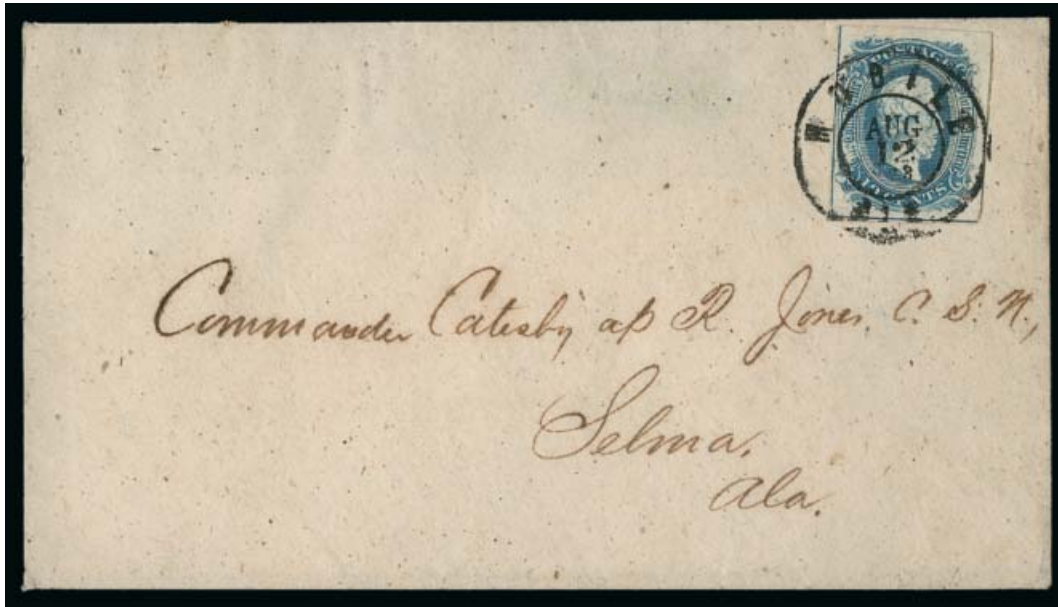 POSTAGE
MOBILE
AUG
12
Commander Catesby ap R. Jones. C. S. N.,
Selma.
Ala.